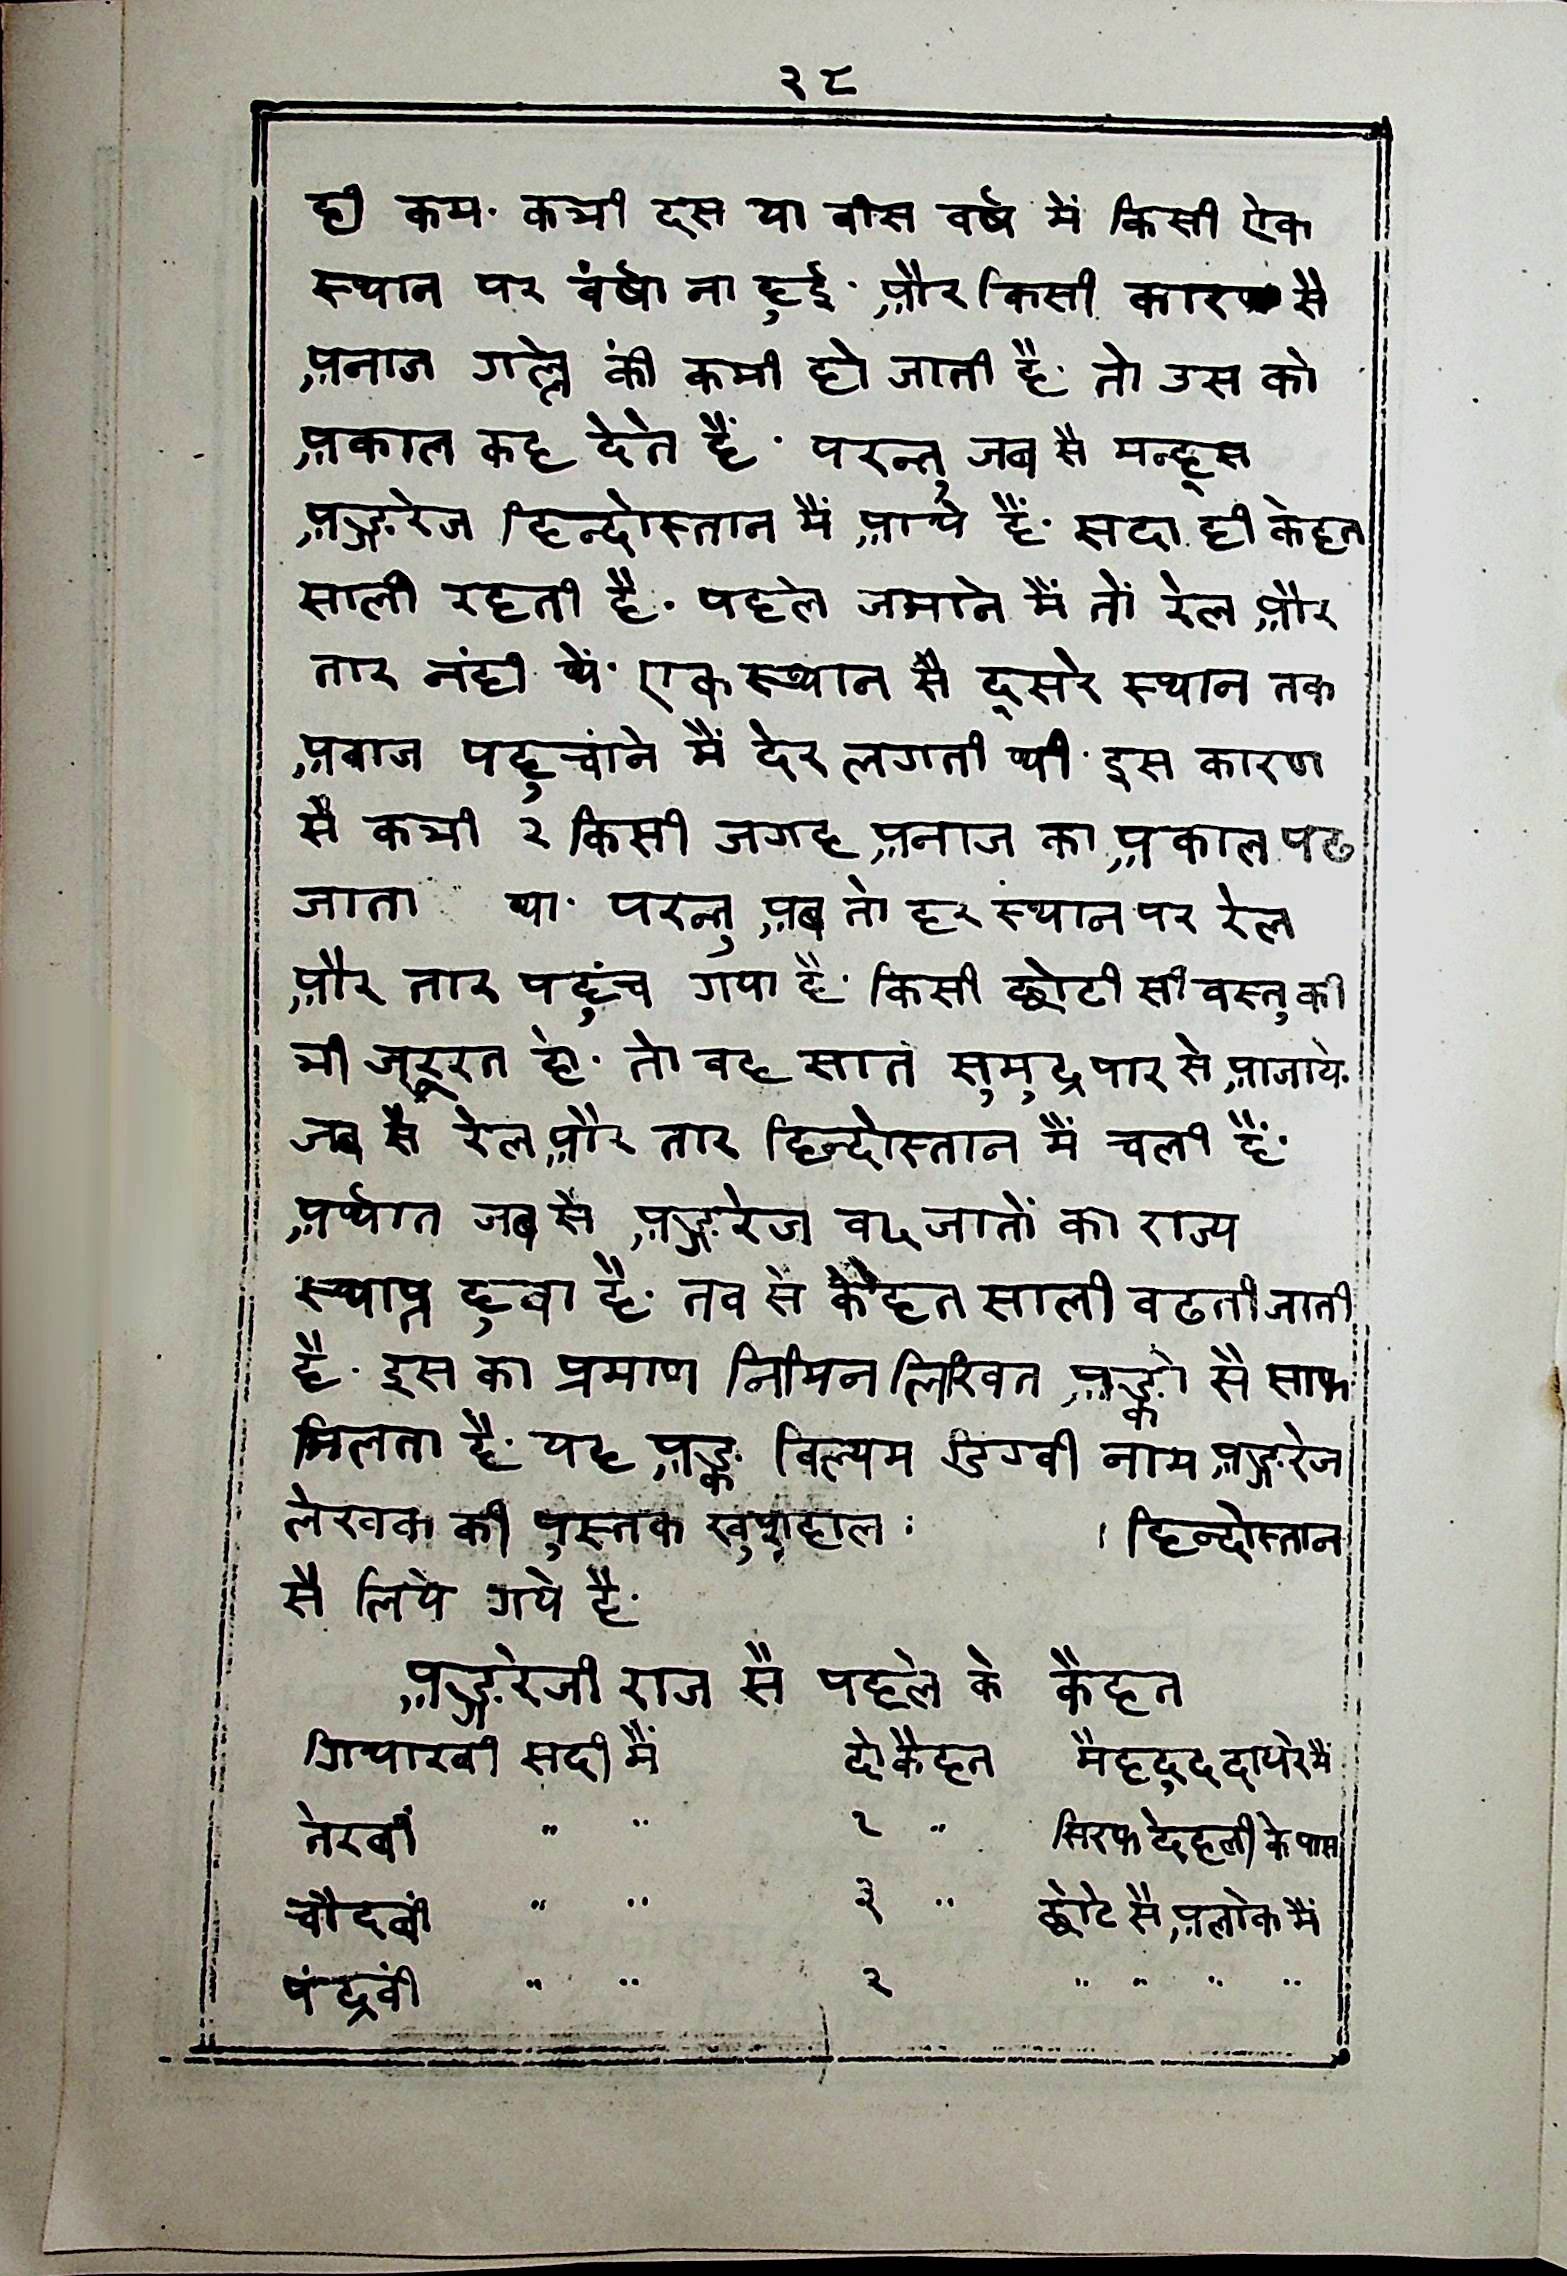 २८
ही कम. कभी दस या बीस वर्ष में किसी ऐक
स्थान पर वंर्षा ना हुई. और किसी कारण सै
अनाज गल्ले कीं कमी हो जाती है. तो उस को
अकाल कह देते हैं. परन्तु जब सै मन्हूस
अङ्गरेज हिन्दोस्तान मैं आये हैं. सदा ही केहत
साली रहती है. पहले जमाने मैं तों रेल और
तार नंही थें. एक स्थान सै दूसरे स्थान तक
अनाज पहुचांने मैं देर लगती थी. इस कारण
सै कभी २ किसी जगह अनाज का अकाल पढ
जाता था. परन्तु अब तो हर स्थान पर रेल
और तार पहुंच गया है. किसी छोटी सी वस्तु की
भी जरूरत हो. तो वह सात सुमुद्र पार से आजाये.
जब सै रेल और तार हिन्दोस्तान मैं चली हैं.
अर्थात जब से अङ्गरेज बदजातों का राज्य
स्थाप्न हुवा है. तव सें कैहत साली वढती जाती
है. इस का प्रमाण निमिन लिखित अङ्को सै साफ
मिलता है. यह अङ्क विल्यम डिगवी नाम अङ्गरेज
लेखक की पुस्तक खुशहाल हिन्दोस्तान
सै लिये गये है.
अङ्गरेजी राज सै पहले के कैहत
गियारवी सदी मैं दो कैहत मैहदुद दायरे मैं
तेरवीं " " १ " सिरफ देहली के पास
चौदवीं " " ३ " छोटे सै अलोक मैं
पंद्रवीं " " २ " " " "